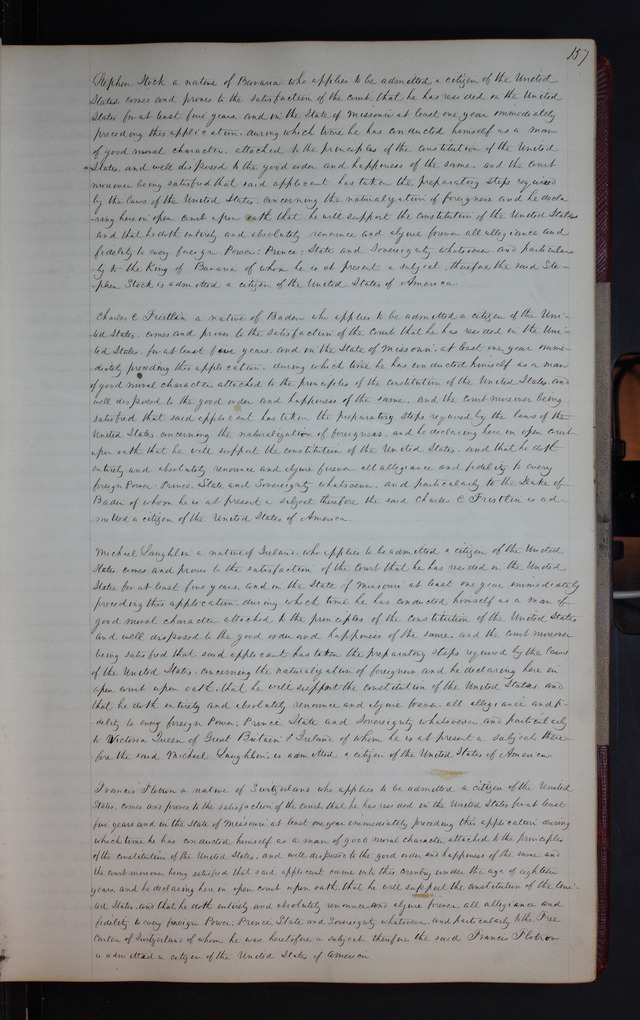 157
Stephen Stock a native of Bavaria who applies to be admitted a citizen of the United
States. comes and proves to the satisfaction of the court. that he has resided in the United
States for at least five years. and in the State of Missouri at least one year immediately
preceding this application. during which time he has conducted himself as a man
of good moral character. attached to the principles of the constitution of the United
States. and well disposed to the good order and happiness of the same. and the court
moreover being satisfied that said applicant has taken the preparatory steps required
by the laws of the United States. concerning the naturalization of foreigners and he decla
ring here in open court upon oath that he will support the constitution of the United States
and that he doth entirely and absolutely renounce and abjure forever all allegiance and
fidelity to every foreign Power: Prince: State and Sovereignty whatsoever. and particular
ly to the King of Bavaria of whom he is at present a subject. therefore the said Ste-
phen Stock is admitted a citizen of the United States of America.
Charles C Fristlin a native of Baden who applies to be admitted a citizen of the Uni-
ted States. comes and proves to the satisfaction of the Court that he has resided in the Uni-
ted States. for at least five years. and in the State of Missouri. at least one year imme-
diately preceding this application. during which time he has conducted himself as a man
of good moral character attached to the principles of the constitution of the United States. and
well disposed to the good order and happiness of the same. and the court moreover being
satisfied that said applicant has taken the preparatory steps required by the laws of the
United States. concerning the naturalization of foreigners. and he declaring here in open court
upon oath that he will support the constitution of the United States. and that he doth
entirely and absolutely renounce and abjure forever all allegiance and fidelity to every
foreign Power. Prince. State and Sovereignty whatsoever. and particularly to the Duke of
Baden of whom he is at present a subject therefore the said Charles C Fristlin is ad-
mitted a citizen of the United States of America
Michael Laughlin a native of Ireland. who applies to be admitted a citizen of the United
States. comes and proves to the satisfaction of the Court that he has resided in the United
States for at least five years. and in the State of Missouri at least one year immediately
preceding this application. during which time he has conducted himself as a man of
good moral character attached to the principles of the constitution of the United States
and well disposed to the good order and happiness of the same and the court moreover
being satisfied that said applicant has taken the preparatory steps required by the laws
of the United States. concerning the naturalization of foreigners and he declaring here in
open court upon oath. that he will support the constitution of the United States. and
that he doth entirely and absolutely renounce and abjure forever. all allegiance and fi-
delity to every foreign Power. Prince State and Sovereignty whatsoever. and particularly
to Victoria Queen of Great Britain & Ireland of whom he is at present a subject. there-
fore the said Michael Laughlin is admitted a citizen of the United States of America
Francis Flotron a native of Switzerland who applies to be admitted a citizen of the United
States. comes and proves to the satisfaction of the court that he has resided in the United States for at least
five years and in the State of Missouri at least one year immediately preceding this application during
which time he has conducted himself as a man of good moral character attached to the principles
of the constitution of the United States. and well disposed to the good order and happiness of the same and
the court moreover being satisfied that said applicant came into this country under the age of eighteen
years. and he declaring here in open court upon oath. that he will support the constitution of the Uni-
ted States. and that he doth entirely and absolutely renounce and abjure forever. all allegiance and
fidelity to every foreign Power. Prince. State and Sovereignty whatsoever. and particularly to the Free
Canton of Switzerland of whom he was heretofore a subject. therefore the said Francis Flotron
is admitted a citizen of the United States of America